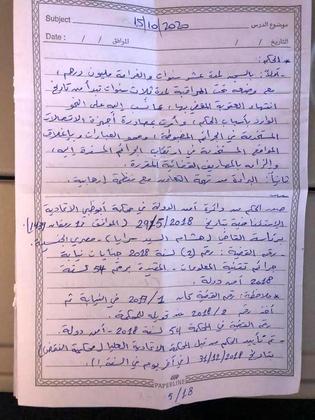 Subject 15/10/2020 موضوع الدرس
Date : / / الموافق / / التاريخ
• الحكم:
- أولاً: بالسجن لمدة عشر سنوات والغرامة مليون درهم،
مع وضعه تحت المراقبة لمدة ثلاث سنوات تبدأ من تاريخ
انتهاء العقوبة المقضي بها، عما نسب إليه على النحو
الوارد بأسباب الحكم، وأمرت بمصادرة أجهزة الاتصالات
المستخدمة في الجرائم المضبوطة، ومحو العبارات وبإغلاق
المواقع المستخدمة في ارتكاب الجرائم المسندة إليه،
وإلزامه بالمصاريف القضائية المقررة.
ثانياً: البراءة من تهمة التعاون مع منظمة إرهابية.
صدر الحكم من دائرة أمن الدولة في محكمة أبوظبي الاتحادية
الاستئنافية بتاريخ 29/5/2018 (الموافق رمضان 1439)
برئاسة القاضي: هشام السيد، مصري الجنسية.
- رقم القضية: رقم (2) لسنة 2018 جنايات نيابة
جرائم تقنية المعلومات، المقيدة برقم 54 لسنة
2018 أمن دولة.
* ملاحظة: رقم القضية كان 1/2017 في النيابة ثم
رقم 2/2018 عند تحويله للمحكمة.
رقم القضية في المحكمة 54 لسنة 2018 - أمن دولة.
- تم تأييد الحكم من قبل المحكمة الاتحادية العليا (محكمة النقض)
بتاريخ 31/12/2018 (في آخر يوم في السنة!).
PAPERLINE
5/18